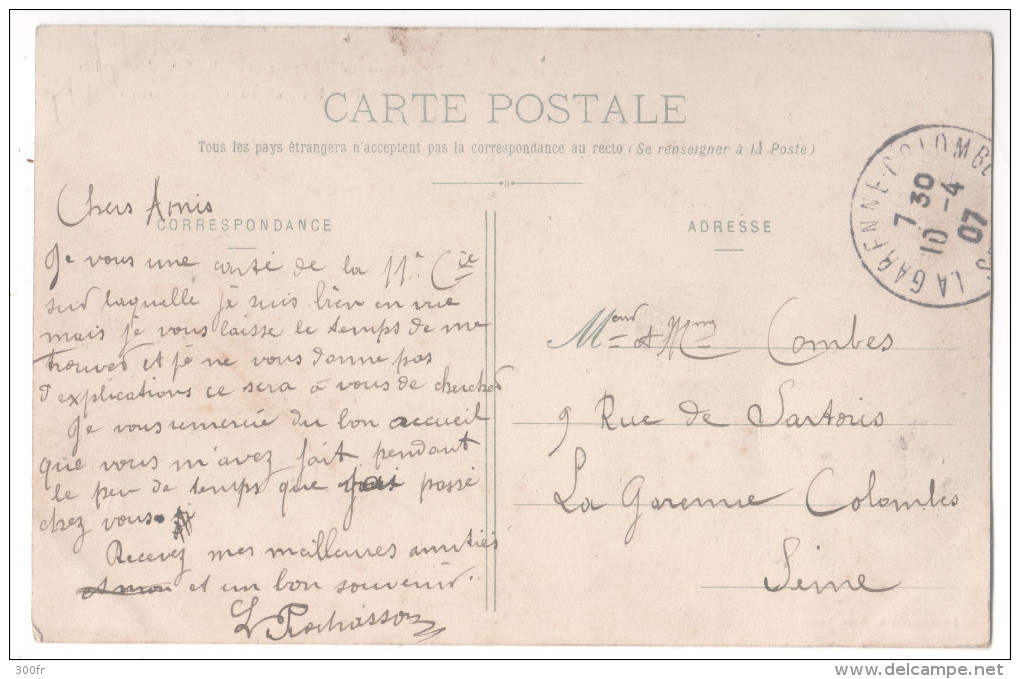 CARTE POSTALE
Tous les pays étrangers n'acceptent pas la correspondance au recto (Se renseigner à la Poste)
CORRESPONDANCE
Chers Amis
Je vous une carte de la 11e Cie
sur laquelle je suis bien en vue
mais je vous laisse le temps de me
trouver et je ne vous donne pas
d'explications ce sera à vous de chercher
Je vous remercie du bon accueil
que vous m'avez fait pendant
le peu de temps que j'ai passé
chez vous.
Recevez mes meilleures amitiés
et mon et un bon souvenir.
L Prochasson
ADRESSE
Mond & Mme Combes
9 Rue de Sartoris
La Garenne Colombes
Seine
LA GARENNE-COLOMBES
7 30
10 -4
07
300fr
www.delcampe.net